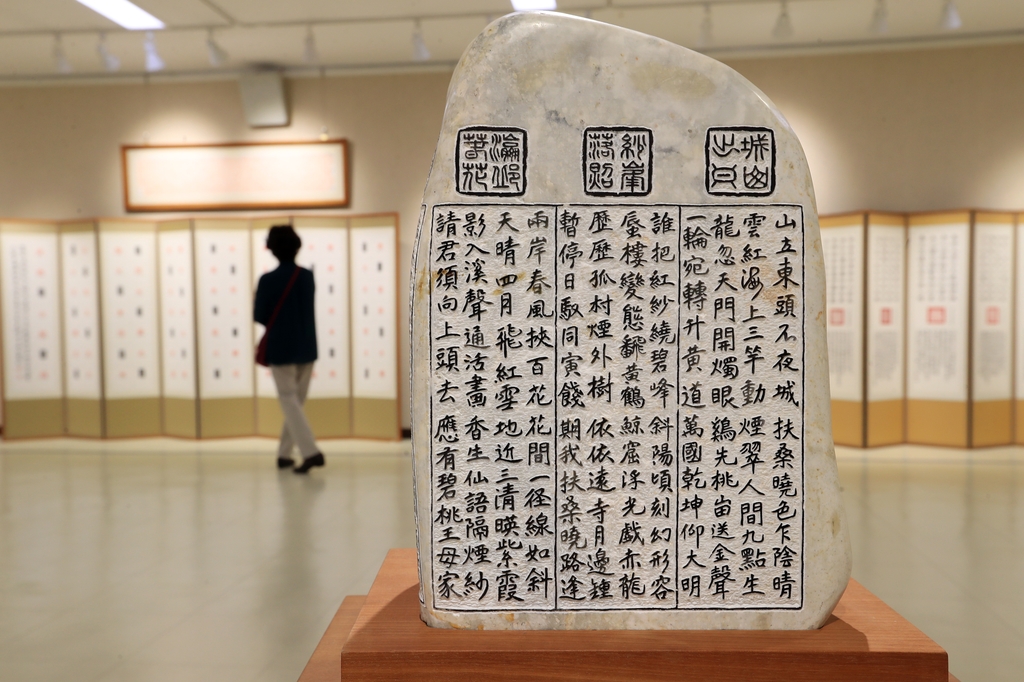 城山出日
山立東頭不夜城 扶桑曉色乍陰晴
雲紅海上三竿動 煙翠人間九點生
龍忽天門開燭眼 鷄先桃峀送金聲
一輪宛轉升黃道 萬國乾坤仰大明
紗峯落照
誰把紅紗繞碧峰 斜陽頃刻幻形容
蜃樓變態飜黃鶴 鯨窟浮光戱赤龍
歷歷孤村煙外樹 依依遠寺月邊鍾
暫停日馭同寅餞 期我扶桑曉路逢
瀛邱春花
兩岸春風挾百花 花間一径線如斜
天晴四月飛紅雪 地近三清暎紫霞
影入溪聲通活畫 香生仙語隔煙紗
請君須向上頭去 應有碧桃王母家